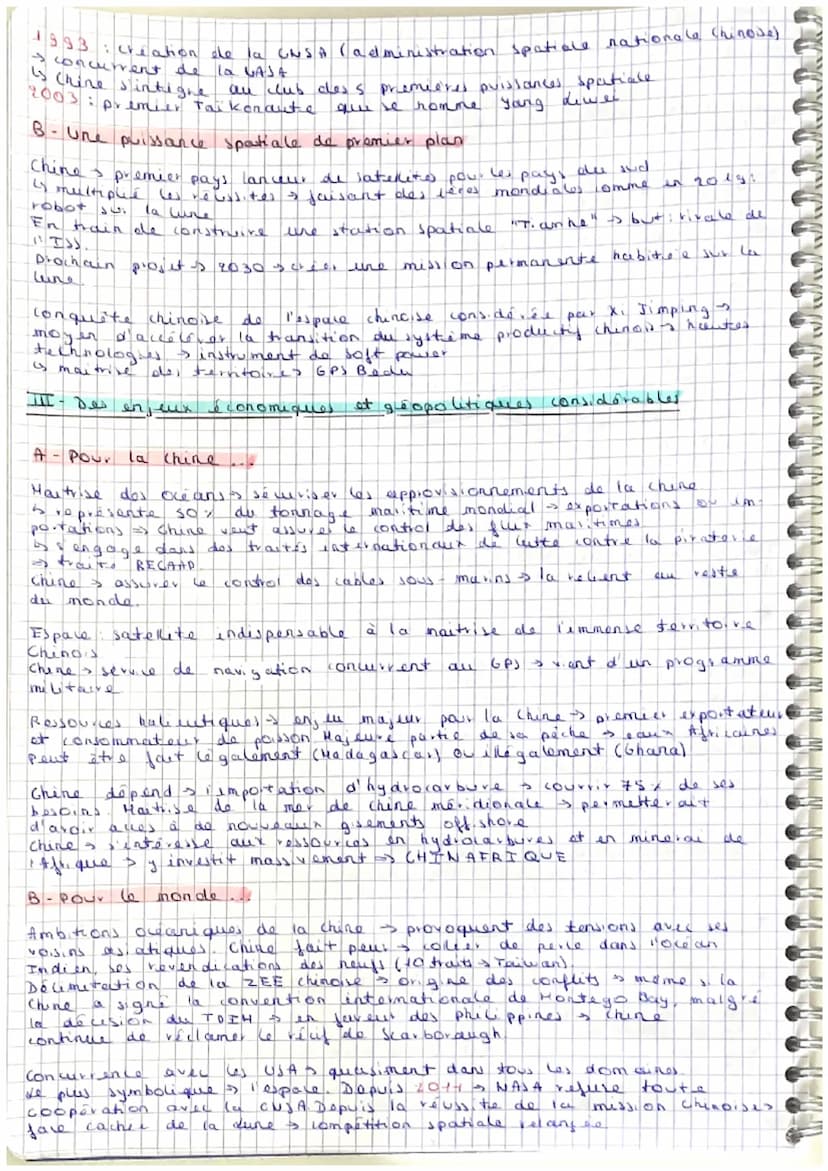 1993 : création de la CNSA (administration spatiale nationale chinoise)
→ concurrent de la NASA
↳ Chine s'intègre au club des 5 premières puissances spatiale
2003 : premier Taïkonaute que se nomme Yang Liwei
B - Une puissance spatiale de premier plan
Chine → premier pays lanceur de satellites pour les pays du sud
↳ multiplie les réussites → faisant des 1ères mondiales comme en 2019 :
robot sur la lune
En train de construire une station spatiale "Tianhe" → but : rivale de
l'ISS.
Prochain projet → 2030 → créer une mission permanente habitée sur la
lune.
Conquête chinoise de l'espace chinoise considérée par Xi Jimping →
moyen d'accélérer la transition du système productif chinois → hautes
technologies → instrument de soft power
↳ maîtrise des territoires GPS Bedu
III - Des enjeux économiques et géopolitiques considérables
A - Pour la Chine ...
Maîtrise des océans → sécuriser les approvisionnements de la Chine
↳ représente 50% du tonnage maritime mondial → exportations ou im-
portations ⇒ Chine veut assurer le control des flux maritimes
↳ s'engage dans des traités internationaux de lutte contre la piraterie
⇒ traité RECAAP
Chine → assurer le control des cables sous-marins → la relient au reste
du monde.
Espace : satellite indispensable à la maîtrise de l'immense territoire
Chinois
Chine → service de navigation concurrent au GPS → vient d'un programme
militaire
Ressources halieutiques → enjeu majeur pour la Chine → premier exportateur
et consommateur de poisson Majeure partie de sa pêche → eaux Africaines
Peut être fait légalement (Madagascar) ou illégalement (Ghana)
Chine dépend → importation d'hydrocarbure → couvrir 75% de ses
besoins. Maîtrise de la mer de chine méridionale → permetterait
d'avoir accès à de nouveaux gisements offshore
Chine → s'intéresse aux ressources en hydrocarbures et en minerai de
l'Afrique → y investit massivement ⇒ CHINAFRIQUE
B - Pour le monde ...
Ambitions océaniques de la Chine → provoquent des tensions avec ses
voisins asiatiques. Chine fait peur → collier de perle dans l'océan
Indien, ses revendications des neufs (10 traits → Taiwan).
Délimitation de la ZEE chinoise → origine des conflits → même si la
Chine a signé la convention internationale de Montego Bay, malgré
la décision du TDIM → en faveur des Philippines → Chine
continue de réclamer le récif de Scarborough.
Concurrence avec les USA → quasiment dans tous les domaines.
Le plus symbolique → l'espace. Depuis 2011 → NASA refuse toute
coopération avec la CNSA. Depuis la réussite de la mission Chinoise →
face cachée de la lune → compétition spatiale relancée